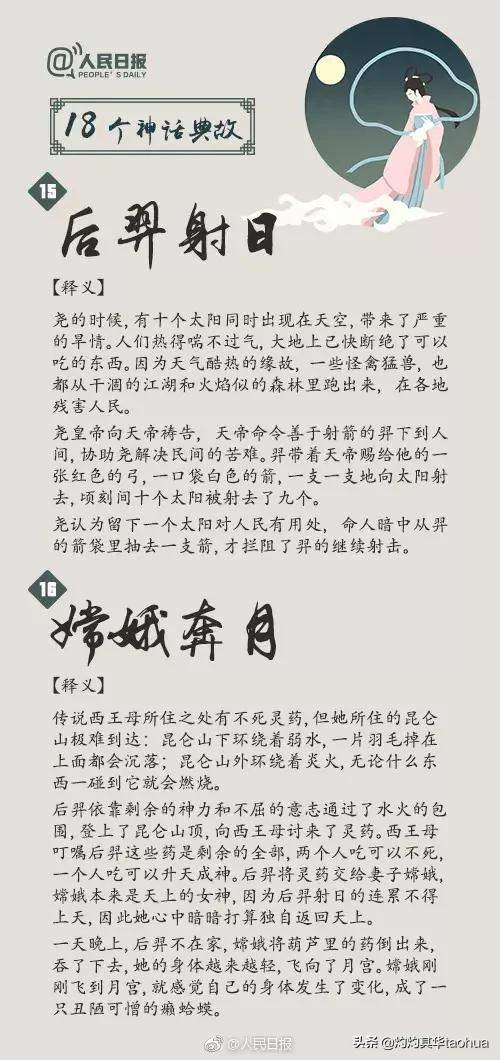 @人民日报
PEOPLE'S DAILY
18个神话典故
15
后羿射日
【释义】
尧的时候,有十个太阳同时出现在天空,带来了严重
的旱情。人们热得喘不过气,大地上已快断绝了可以
吃的东西。因为天气酷热的缘故,一些怪禽猛兽,也
都从干涸的江湖和火焰似的森林里跑出来,在各地
残害人民。
尧皇帝向天帝祷告,天帝命令善于射箭的羿下到人
间,协助尧解决民间的苦难。羿带着天帝赐给他的一
张红色的弓,一口袋白色的箭,一支一支地向太阳射
去,顷刻间十个太阳被射去了九个。
尧认为留下一个太阳对人民有用处,命人暗中从羿
的箭袋里抽去一支箭,才拦阻了羿的继续射击。
16
嫦娥奔月
【释义】
传说西王母所住之处有不死灵药,但她所住的昆仑
山极难到达：昆仑山下环绕着弱水,一片羽毛掉在
上面都会沉落；昆仑山外环绕着炎火,无论什么东
西一碰到它就会燃烧。
后羿依靠剩余的神力和不屈的意志通过了水火的包
围,登上了昆仑山顶,向西王母讨来了灵药。西王母
叮嘱后羿这些药是剩余的全部,两个人吃可以不死,
一个人吃可以升天成神。后羿将灵药交给妻子嫦娥,
嫦娥本来是天上的女神,因为后羿射日的连累不得
上天,因此她心中暗暗打算独自返回天上。
一天晚上,后羿不在家,嫦娥将葫芦里的药倒出来,
吞了下去,她的身体越来越轻,飞向了月宫。嫦娥刚
刚飞到月宫,就感觉自己的身体发生了变化,成了一
只丑陋可憎的癞蛤蟆。
@人民日报
头条@灼灼其华taohua